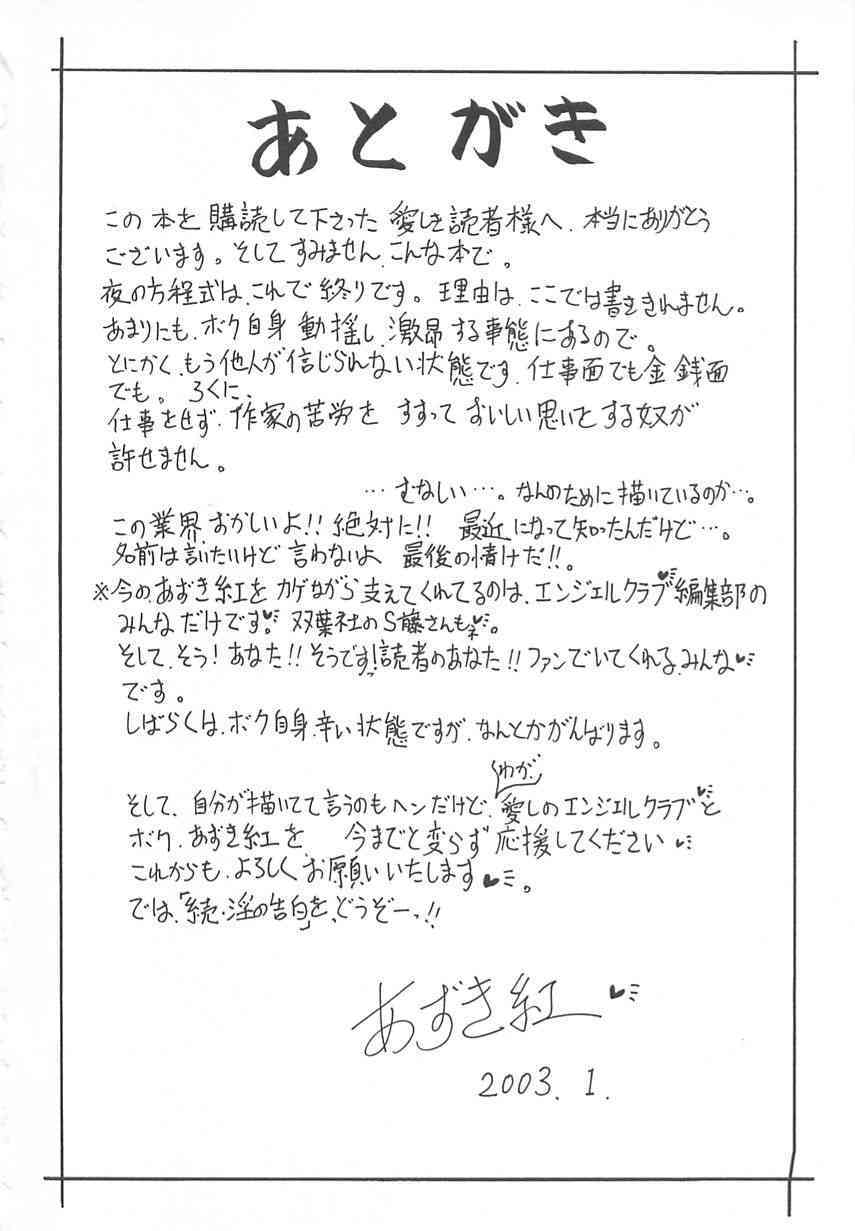 あとがき
この本を購読して下さった愛しき読者様へ、本当にありがとう
ございます。そしてすみません、こんな本で。
夜の方程式は、これで終りです。理由は、ここでは書ききれません。
あまりにも、ボク自身動揺し、激昂する事態にあるので。
とにかく、もう他人が信じられない状態です、仕事面でも金銭面
でも。ろくに、
仕事をせず、作家の苦労をすすっておいしい思いをする奴が
許せません。
…むなしい…。なんのために描いているのか…。
この業界、おかしいよ!!絶対に!!最近になって知ったんだけど…。
名前は言いたいけど言わないよ 最後の情けだ!!。
※今の、あずき紅をカゲながら支えてくれてるのは、エンジェルクラブ編集部の
みんなだけです♥。双葉社のS藤さんも♥。
そして、そう!あなた!!そうです!読者のあなた!!ファンでいてくれる、みんな♥
です。
しばらくは、ボク自身、辛い状態ですが、なんとかがんばります。
わが
そして、自分が描いてて言うのもヘンだけど、愛しのエンジェルクラブ♥と
ボク、あずき紅を 今までと変らず応援してください♥
これからも、よろしくお願いいたします♥。
では、「続・淫の告白」を、どうぞーっ!!
あずき紅♥
2003.1.